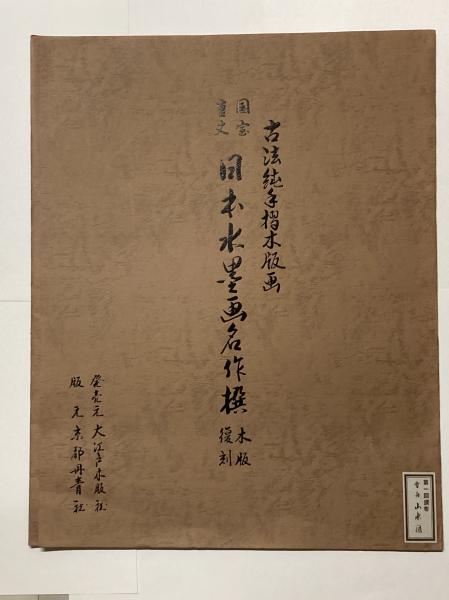 古法純手摺木版画
国宝
重文
日本水墨画名作撰
木版
復刻
発売元 大江戸木版社
版元 京都丹青社
第一回頒布
雪舟 山水図